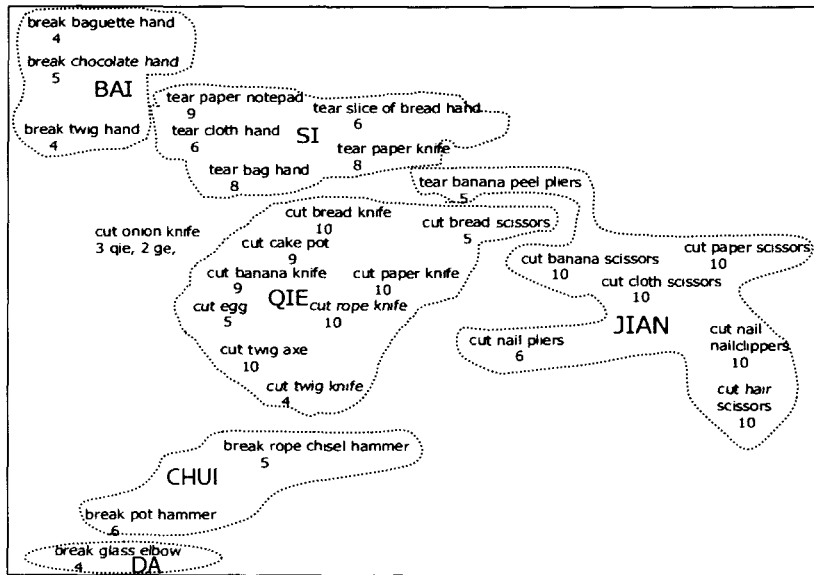 break baguette hand
4
break chocolate hand
5
BAI
break twig hand
4
tear paper notepad
9
tear slice of bread hand
6
tear cloth hand
6
SI
tear paper knife
8
tear bag hand
8
tear banana peel pliers
5
cut onion knife
3 qie, 2 ge,
cut bread knife
10
cut bread scissors
5
cut cake pot
9
cut banana knife
9
cut paper knife
10
QIE
cut egg
5
cut rope knife
10
cut twig axe
10
cut twig knife
4
cut paper scissors
10
cut banana scissors
10
cut cloth scissors
10
JIAN
cut nail pliers
6
cut nail
nailclippers
10
cut hair
scissors
10
break rope chisel hammer
5
CHUI
break pot hammer
6
break glass elbow
4
DA